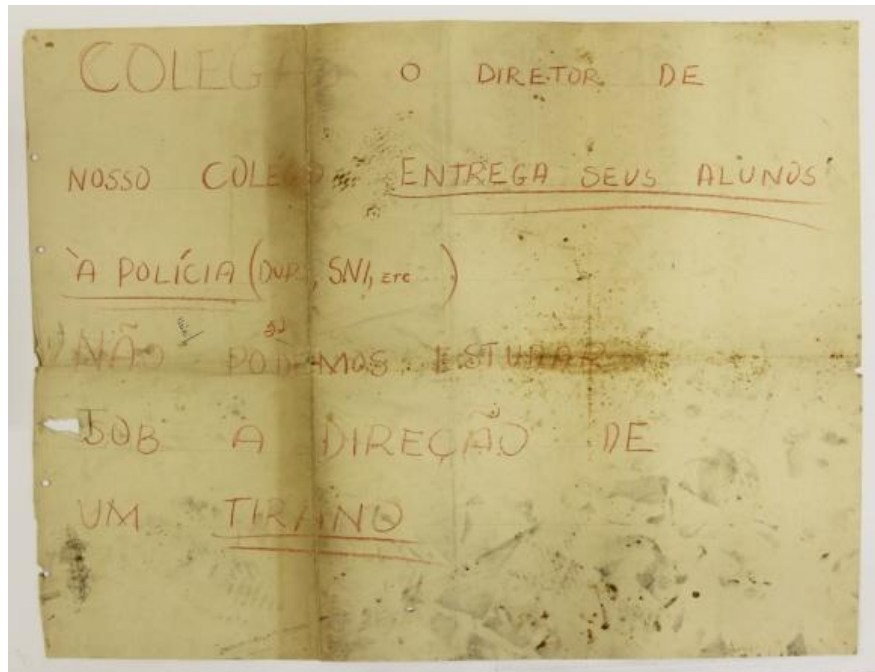 COLEGA O DIRETOR DE
NOSSO COLEGIO ENTREGA SEUS ALUNOS
À POLÍCIA (DOPS, SNI, ETC )
NÃO PODEMOS ESTUDAR
SOB A DIREÇÃO DE
UM TIRANO